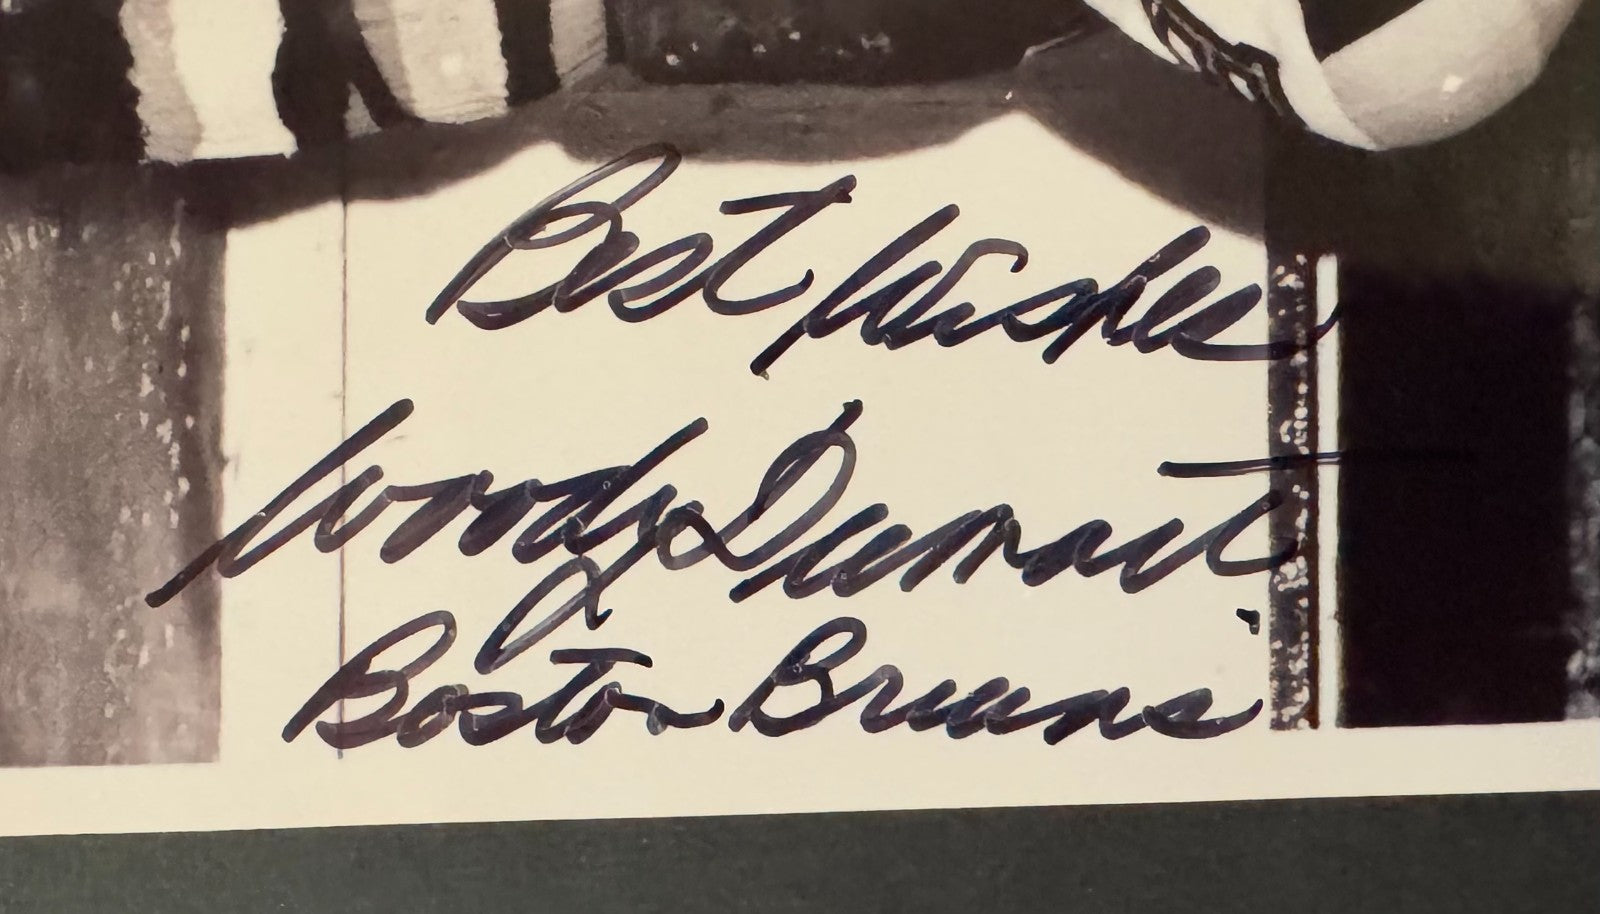 Best Wishes
Woody Dumart
Boston Bruins